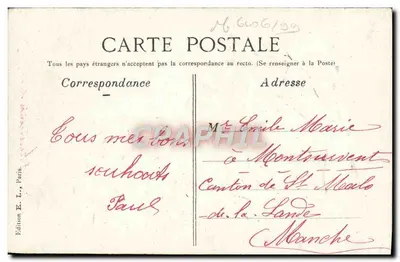 CARTE POSTALE
Tous les pays étrangers n'acceptent pas la correspondance au recto. (Se renseigner à la Poste)
Correspondance
Adresse
Tous mes bons
souhaits
Paul
Mr Emile Marie
à Montsurvent
Canton de St Malo
de la Lande
Manche
Edition E. L., Paris.